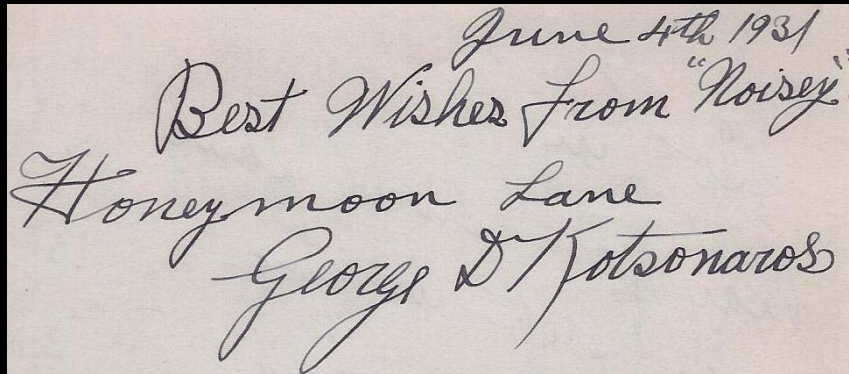 June 4th 1931
Best Wishes from "Noisey"
Honeymoon Lane
George D Kotsonaros